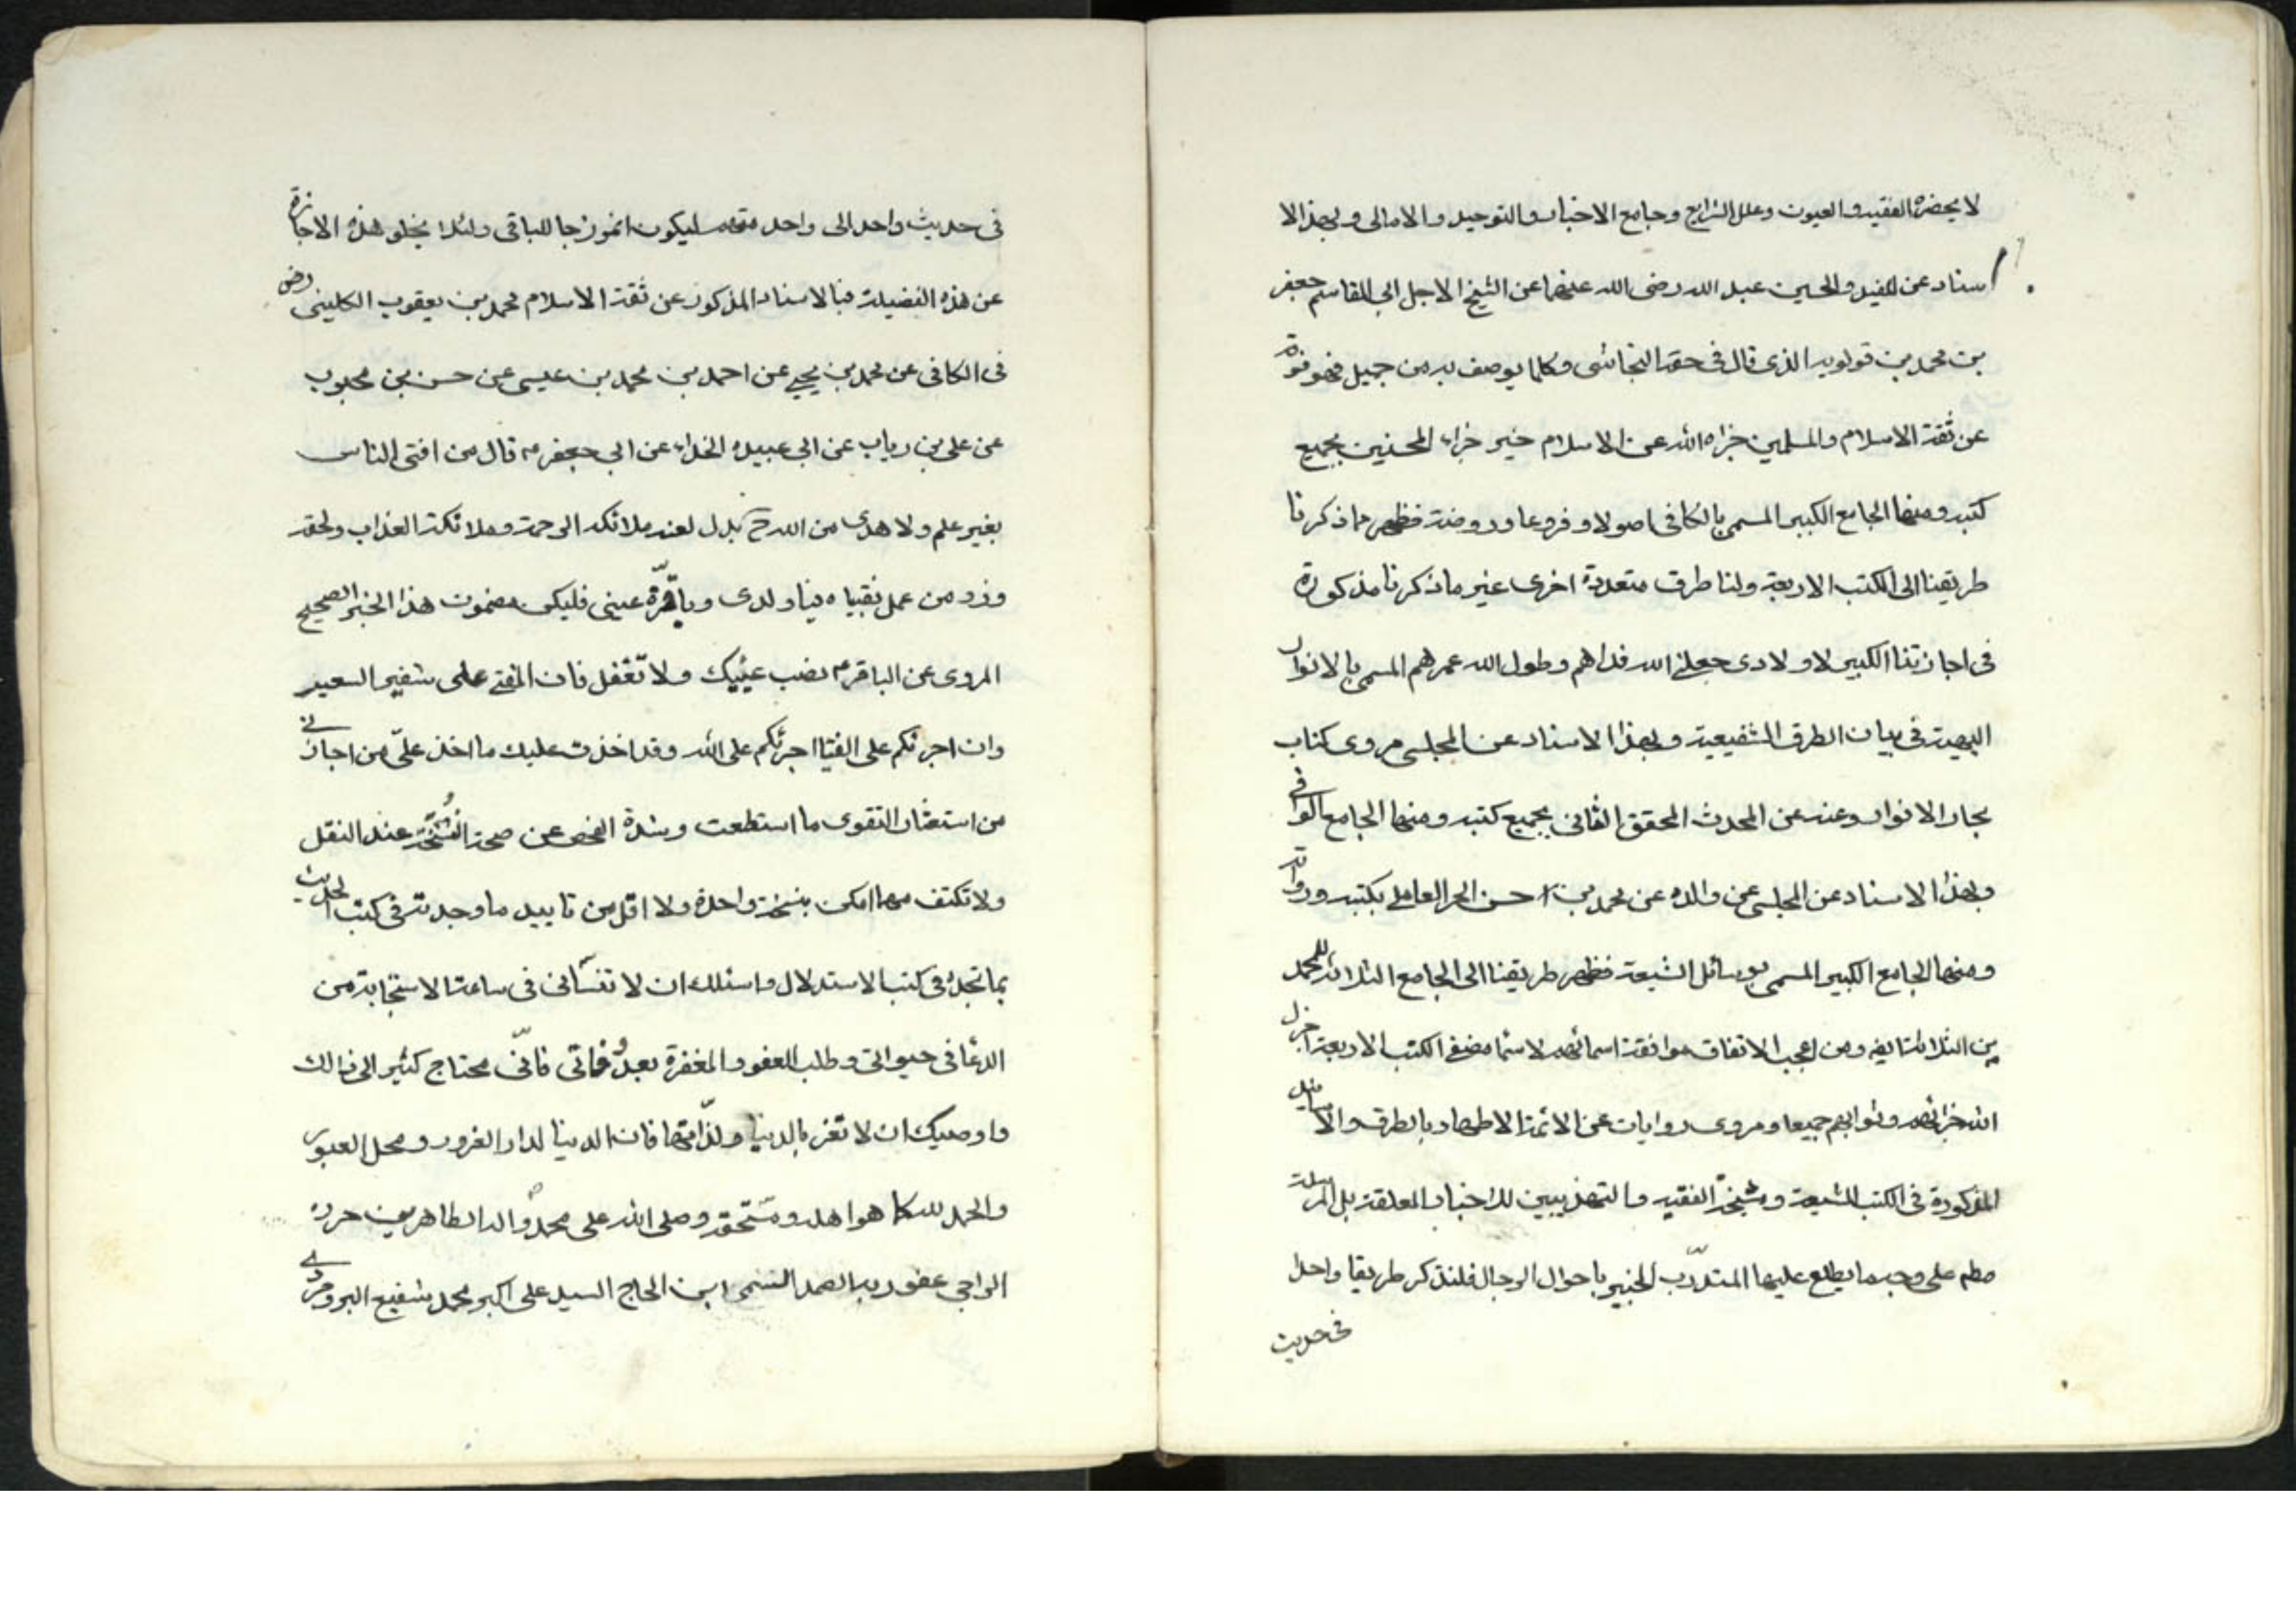 لا يحضره الفقيه والعيون وعلل الشرايع وجامع الاخبار والتوحيد والامالى وبهذا الا
اسناد عن المفيد والحسين عبد الله رضى الله عنهما عن الشيخ الاجل ابى القاسم جعفر
بن محمد بن قولويه الذى قال فى حقه النجاشى وكلما يوصف به من جميل فهو فوقه
عن ثقة الاسلام والمسلمين جزاه الله عن الاسلام خير جزاء المحسنين بجميع
كتبه ومنها الجامع الكبير المسمى بالكافى اصولا وفروعا وروضة فظهر مما ذكرنا
طريقنا الى الكتب الاربعة ولنا طرق متعددة اخرى غير ما ذكرنا مذكورة
فى اجازتنا الكبير لاولادى جعلنى الله فداهم وطول الله عمرهم المسمى بالانوار
البهية فى بيان الطرق الشفيعية وبهذا الاسناد عن المجلسى مروى كتاب
بحار الانوار وعنه عن المحدث المحقق القانى بجميع كتبه ومنها الجامع الوافى
وبهذا الاسناد عن المجلسى عن والده عن محمد بن حسن الحر العاملى بكتبه ورواته
ومنها الجامع الكبير المسمى بوسائل الشيعة فظهر طريقنا الى الجامع الثلاثة للمحمد
ين الثلاثة ومن اعجب الاتفاق موافقة اسمائهم لاسماء مصنفى الكتب الاربعة اجزل
الله جزائهم وثوابهم جميعا ومروى روايات عن الائمة الاطهار بالطرق والاسانيد
المذكورة فى الكتب الشيعة ومشيخة الفقيه والتهذيبين للاخبار المعلقة بل المرسلة
مطم على وجه ما يطلع عليها المتدرّب الخبير باحوال الرجال فلنذكر طريقا واحدا
فى حديث
فى حديث واحد الى واحد منهم ليكون انموزجا للباقى ولئلا يخلو هذه الاجازة
عن هذه الفضيلة فبالاسناد المذكور عن ثقة الاسلام محمد بن يعقوب الكلينى رض
فى الكافى عن محمد بن يحيى عن احمد بن محمد بن عيسى عن حسن بن محبوب
عن على بن رياب عن ابى عبيده الحذاء عن ابى جعفر ع قال من افتى الناس
بغير علم ولا هدى من الله بدل لعنه ملائكه الرحمة وملائكة العذاب ولحقه
وزر من عمل بفتياه فيا ولدى ويا قرّة عينى فليكن مضمون هذا الخبر الصحيح
المروى عن الباقر ع نصب عينيك ولا تغفل فان المفتى على شفير السعير
وان اجرئكم على الفتيا اجرئكم على الله وقد اخذت عليك ما اخذ علىّ من اجازنى
من استعثار التقوى ما استطعت وشدة الفحص عن صحة النسخة عند النقل
ولا تكتف مهما امكن بنسخة واحدة ولا اقل من تاييد ما وجدته فى كتب الحديث
بما تجده فى كتب الاستدلال واسئلك ان لا تنسانى فى ساعة الاستجابة من
الدعا فى حيوتى وطلب العفو والمغفرة بعد وفاتى فانّى محتاج كثير الى ذالك
واوصيك ان لا تغر بالدنيا ولذّاتها فان الدنيا لدار الغرور ومحل العبور
والحمد لله كما هو اهله ومستحقه وصلى الله على محمد واله الطاهرين حرره
الراجى عفو ربه الصمد السمى ابن الحاج السيد على اكبر محمد شفيع البروجردى